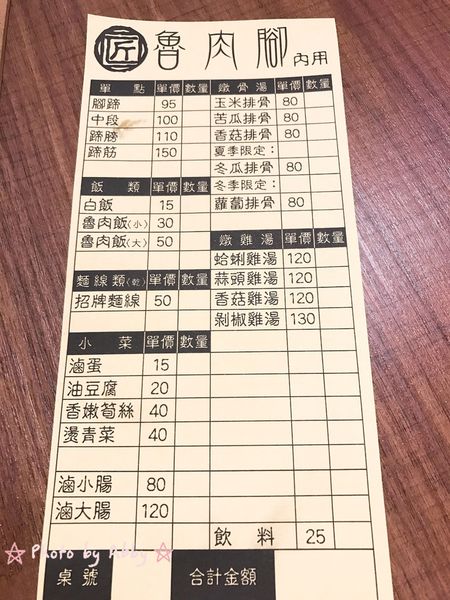 匠 魯肉腳 內用
單點 單價 數量
腳蹄 95
中段 100
蹄膀 110
蹄筋 150
飯類 單價 數量
白飯 15
魯肉飯(小) 30
魯肉飯(大) 50
麵線類(乾) 單價 數量
招牌麵線 50
小菜 單價 數量
滷蛋 15
油豆腐 20
香嫩筍絲 40
燙青菜 40
滷小腸 80
滷大腸 120
燉骨湯 單價 數量
玉米排骨 80
苦瓜排骨 80
香菇排骨 80
夏季限定：
冬瓜排骨 80
冬季限定：
蘿蔔排骨 80
燉雞湯 單價 數量
蛤蜊雞湯 120
蒜頭雞湯 120
香菇雞湯 120
剁椒雞湯 130
飲料 25
桌號 合計金額
☆ Photo by Abby ☆